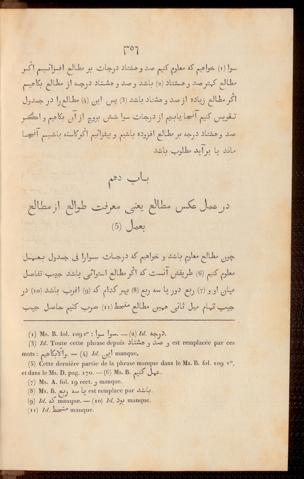 ٣٥٦
سوا (1) خواهیم که معلوم کنیم صد و هشتاد درجات بر مطالع افزائیم اگر
مطالع کمتر صد و هشتاد (2) باشد و صد و هشتاد درجه از مطالع بکاهیم
اگر مطالع زیاده از صد و هشتاد باشد (3) پس این (4) مطالع را در جدول
تقویس کنیم آنجا یابیم از درجات سوا شش بروج از آن بکاهیم و اگر
صد و هشتاد درجه بر مطالع افزوده باشیم و بیفزائیم اگر کاسته باشیم آنجا
ماند یا بر آید مطلوب باشد
باب دهم
در عمل عکس مطالع یعنی معرفت طوالع از مطالع
بعمل (5)
چون مطالع معلوم باشد و خواهیم که درجات سوارا فی جدول بعمل
معلوم کنیم (6) طریقش آنست که اگر مطالع استوائی باشد جیب تفاضل
میان او و (7) ربع دور یا سه ربع (8) بهر کدام که (9) اقرب باشد (10) در
جیب تمام میل ثانی همین مطالع منحط (11) ضرب کنیم حاصل جیب
(1) Ms. B. fol. 109 r° : سوا سوا. — (2) Id. درجه.
(3) Id. Toute cette phrase depuis صد و هشتاد est remplacée par ces
mots : والا بکاهیم. — (4) Id. این manque.
(5) Cette dernière partie de la phrase manque dans le Ms. B. fol. 109 v°,
et dans le Ms. D. pag. 170. — (6) Ms. B. عمل کنیم.
(7) Ms. A. fol. 19 vert. و manque.
(8) Ms. B. یا سه ربع est remplacé par باشد.
(9) Id. که manque. — (10) Id. بود manque.
(11) Id. منحط manque.